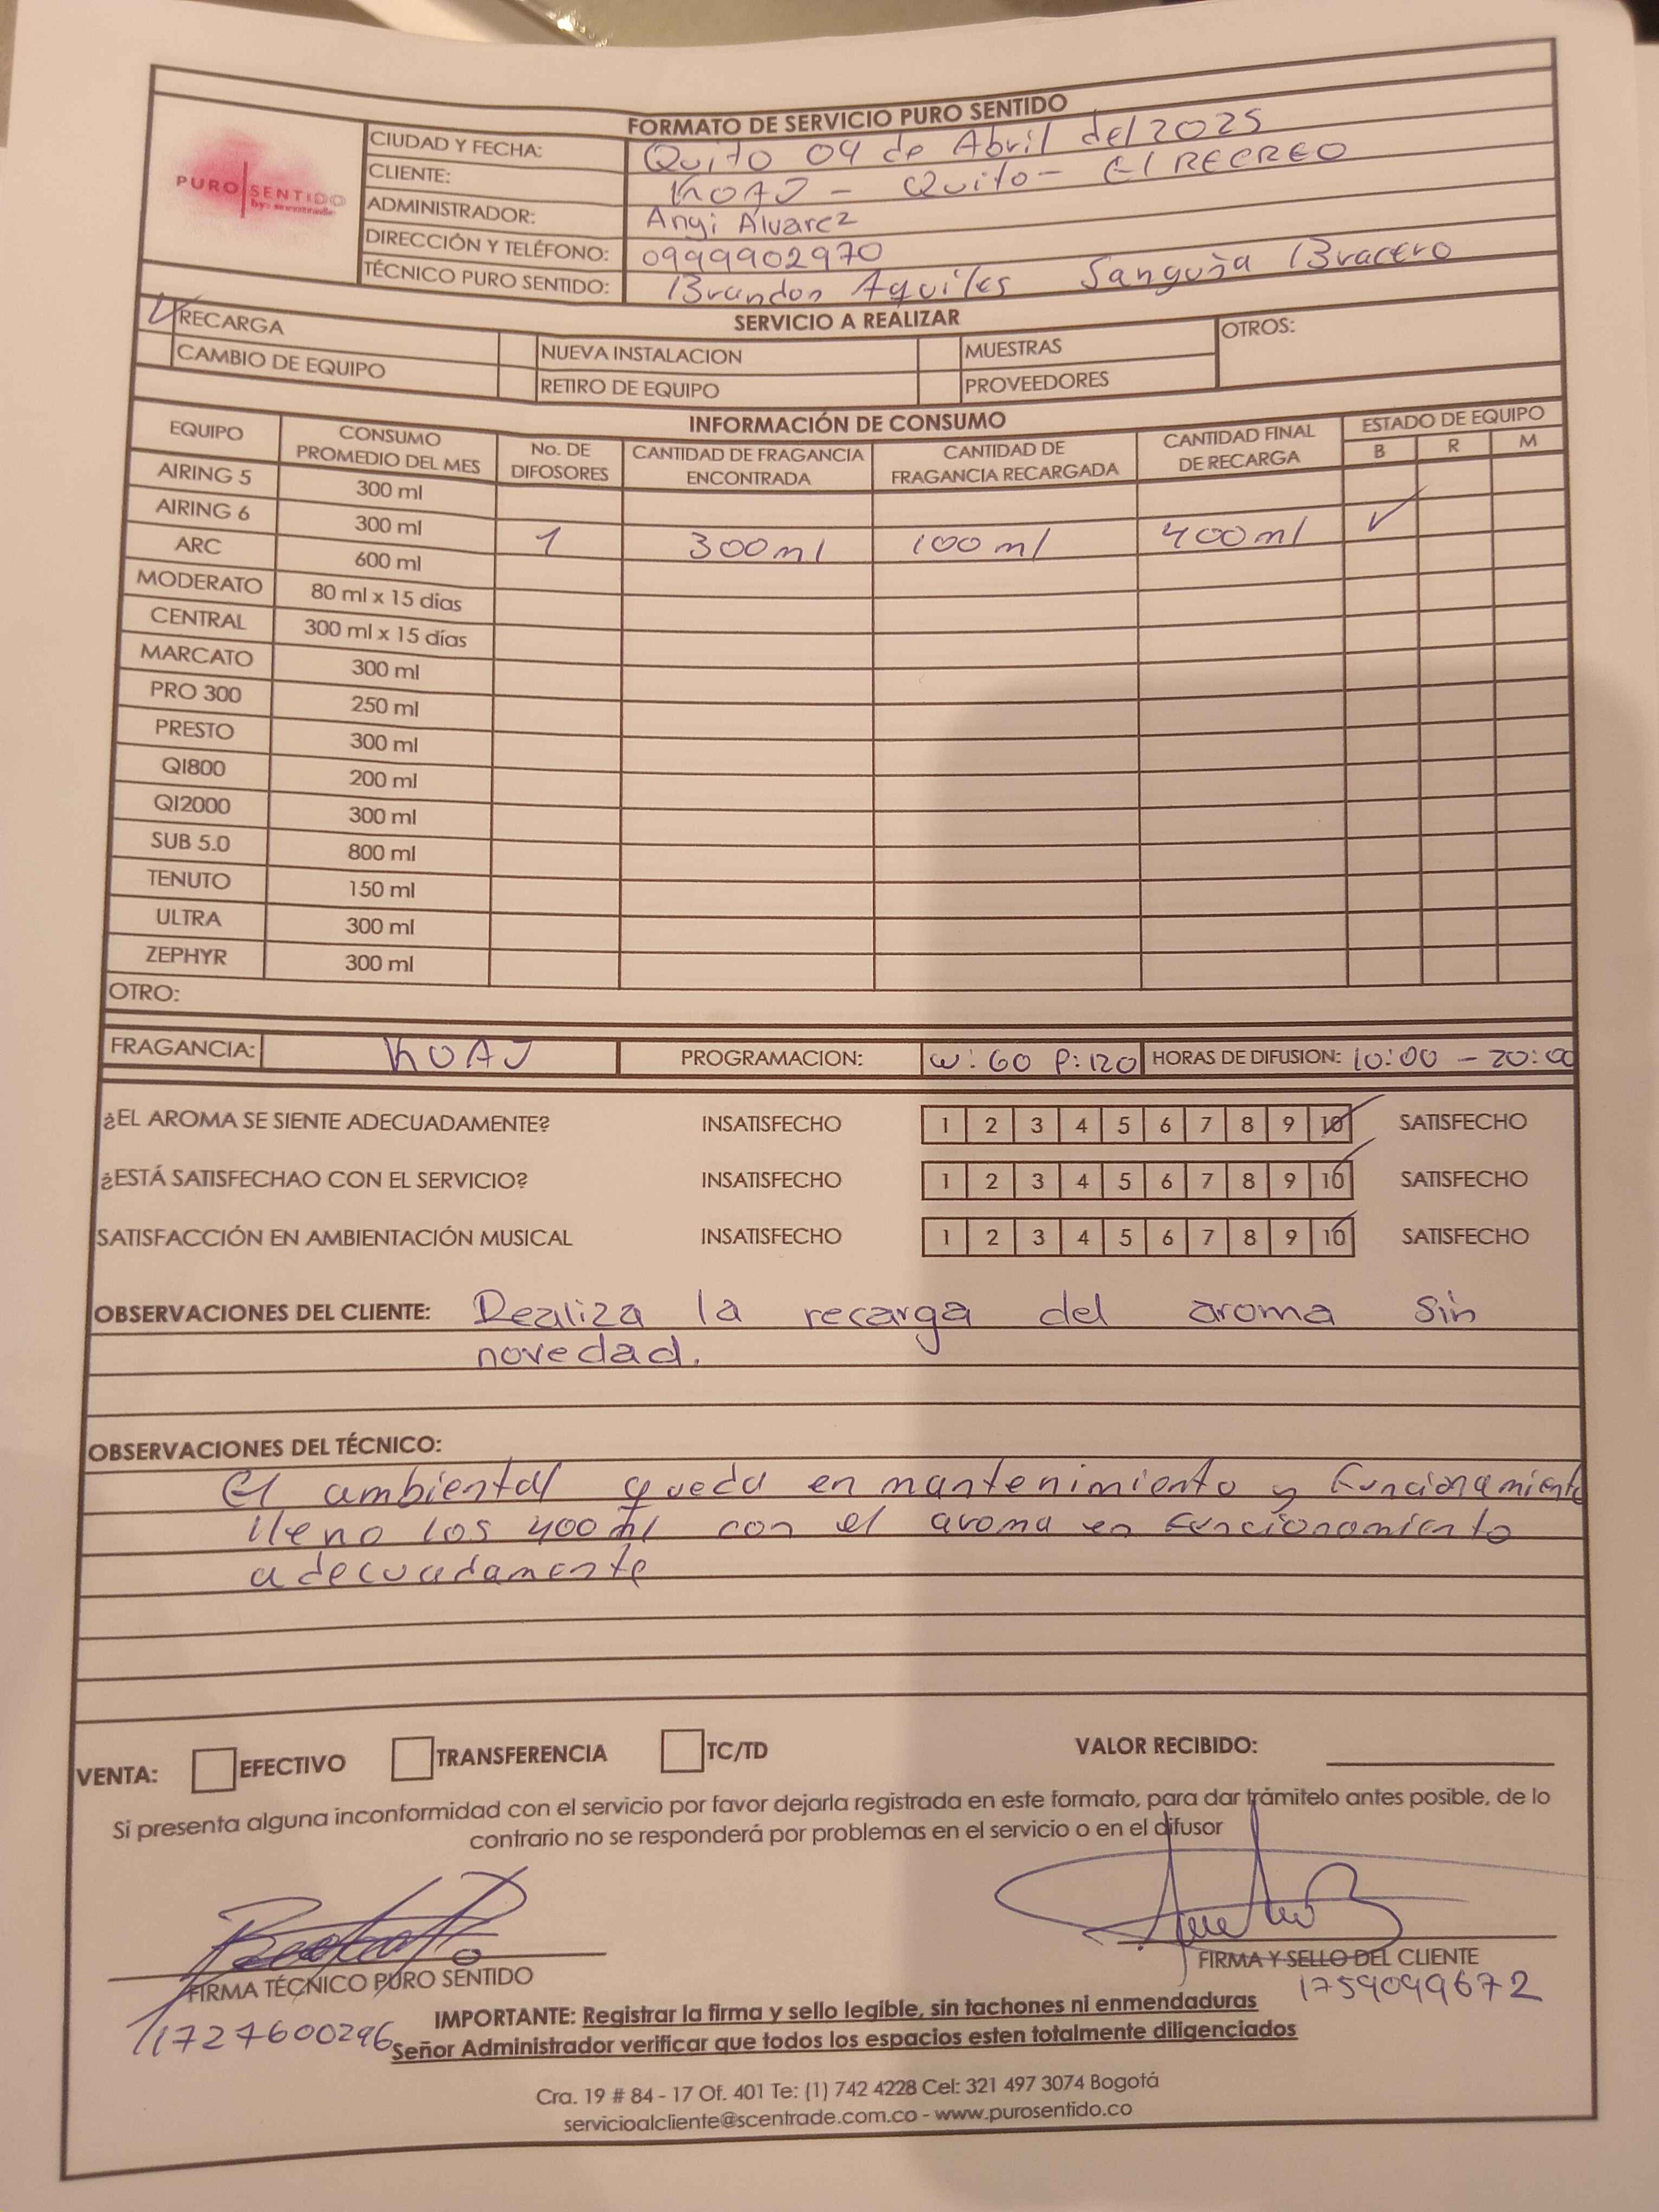 FORMATO DE SERVICIO PURO SENTIDO
PURO SENTIDO
by: scentrade
CIUDAD Y FECHA: Quito 04 de Abril del 2025
CLIENTE: KOAJ - Quito - El RECREO
ADMINISTRADOR: Angi Alvarez
DIRECCIÓN Y TELÉFONO: 0999902970
TÉCNICO PURO SENTIDO: Brandon Aquiles Sanguña Bracero
SERVICIO A REALIZAR
RECARGA NUEVA INSTALACION MUESTRAS OTROS:
CAMBIO DE EQUIPO RETIRO DE EQUIPO PROVEEDORES
INFORMACIÓN DE CONSUMO
EQUIPO CONSUMO PROMEDIO DEL MES No. DE DIFOSORES CANTIDAD DE FRAGANCIA ENCONTRADA CANTIDAD DE FRAGANCIA RECARGADA CANTIDAD FINAL DE RECARGA ESTADO DE EQUIPO B R M
AIRING 5 300 ml
AIRING 6 300 ml 1 300ml 100ml 400ml ✓
ARC 600 ml
MODERATO 80 ml x 15 días
CENTRAL 300 ml x 15 días
MARCATO 300 ml
PRO 300 250 ml
PRESTO 300 ml
QI800 200 ml
QI2000 300 ml
SUB 5.0 800 ml
TENUTO 150 ml
ULTRA 300 ml
ZEPHYR 300 ml
OTRO:
FRAGANCIA: KOAJ PROGRAMACION: W: 60 P: 120 HORAS DE DIFUSION: 10:00 - 20:00
¿EL AROMA SE SIENTE ADECUADAMENTE? INSATISFECHO 1 2 3 4 5 6 7 8 9 10 SATISFECHO
¿ESTÁ SATISFECHAO CON EL SERVICIO? INSATISFECHO 1 2 3 4 5 6 7 8 9 10 SATISFECHO
SATISFACCIÓN EN AMBIENTACIÓN MUSICAL INSATISFECHO 1 2 3 4 5 6 7 8 9 10 SATISFECHO
OBSERVACIONES DEL CLIENTE: Realiza la recarga del aroma sin
novedad.
OBSERVACIONES DEL TÉCNICO:
El ambiental queda en mantenimiento y Funcionamiento
lleno los 400ml con el aroma en Funcionamiento
adecuadamente
VENTA: EFECTIVO TRANSFERENCIA TC/TD VALOR RECIBIDO:
Si presenta alguna inconformidad con el servicio por favor dejarla registrada en este formato, para dar trámitelo antes posible, de lo
contrario no se responderá por problemas en el servicio o en el difusor
FIRMA TÉCNICO PURO SENTIDO FIRMA Y SELLO DEL CLIENTE
1727600296 1759099672
IMPORTANTE: Registrar la firma y sello legible, sin tachones ni enmendaduras
Señor Administrador verificar que todos los espacios esten totalmente diligenciados
Cra. 19 # 84 - 17 Of. 401 Te: (1) 742 4228 Cel: 321 497 3074 Bogotá
servicioalcliente@scentrade.com.co - www.purosentido.co